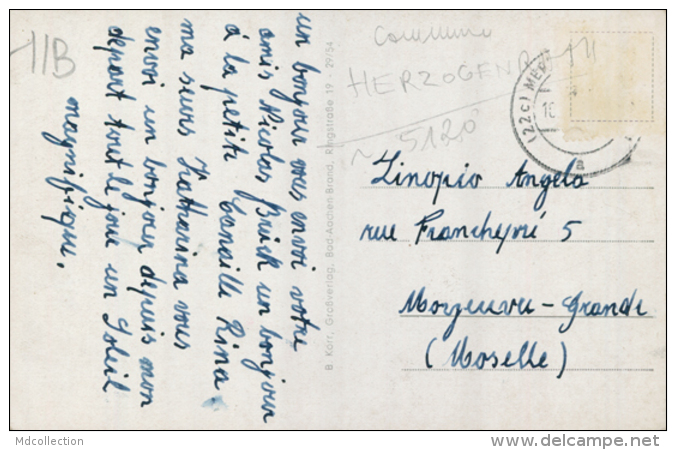 11B
un bonjour vous envoi votre
amis Nicolas Brück un bonjour
à la petite Canaille Rina
ma seurs Katharina vous
envoi un bonjour depuis mon
depart tout le jour un Soleil
magnifique.
B. Korr, Großverlag, Bad-Aachen-Brand, Ringstraße 19 - 29/54
commune
HERZOGENR
5120
(22c) MER
Zinopio Angelo
rue Francheprè 5
Moyeuvre-Grande
(Moselle)
Mdcollection
www.delcampe.net